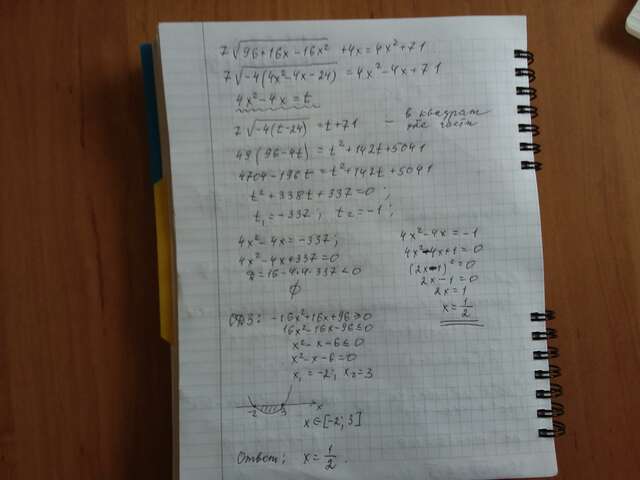 7√(96+16x-16x²) +4x=4x²+71
7√(-4(4x²-4x-24)) =4x²-4x+71
4x²-4x=t
7√(-4(t-24)) =t+71 - в квадрат
обе части
49(96-4t)=t²+142t+5041
4704-196t=t²+142t+5041
t²+338t+337=0;
t₁=-337; t₂=-1;
4x²-4x=-337;
4x²-4x+337=0
D=16-4·4·337<0
∅
4x²-4x=-1
4x²-4x+1=0
(2x-1)²=0
2x-1=0
2x=1
x=1/2
ОДЗ: -16x²+16x+96≥0
16x²-16x-96≤0
x²-x-6≤0
x²-x-6=0
x₁=-2; x₂=3
-2 3 x
x∈[-2; 3]
Ответ: x=1/2.